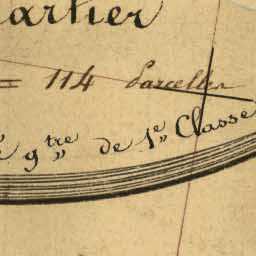 artier
= 114 Parcelles
é g^tre de 1^e Classe